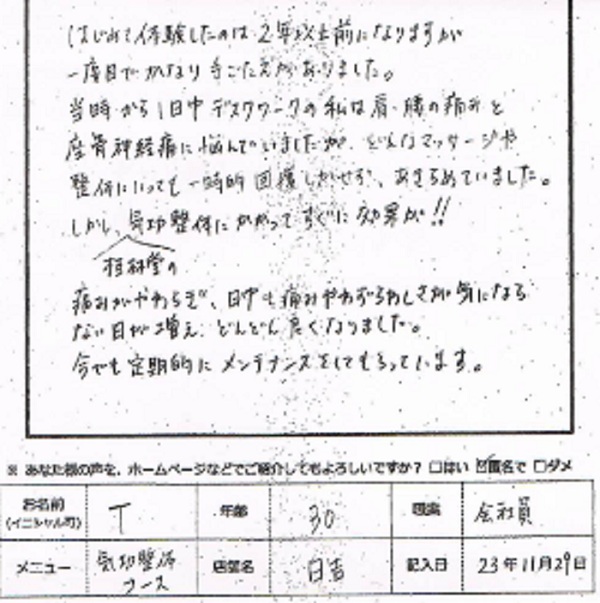 はじめて体験したのは2年以上前になりますが
一度目でかなり手ごたえがありました。
当時から1日中デスクワークの私は肩・腰の痛みと
座骨神経痛に悩んでいましたが、どんなマッサージや
整体にいっても一時的回復しかせず、あきらめていました。
しかし、気功整体にかかってすぐに効果が!!
の
痛みがやわらぎ、日中も痛みやわずらわしさが気になら
ない日が増え、どんどん良くなりました。
今でも定期的にメンテナンスをしてもらっています。
※ あなた様の声を、ホームページなどでご紹介してもよろしいですか? □はい ☑匿名で □ダメ
お名前 (イニシャル可) T 年齢 30 職業 会社員
メニュー 気功整体コース 店舗名 日吉 記入日 23年11月29日